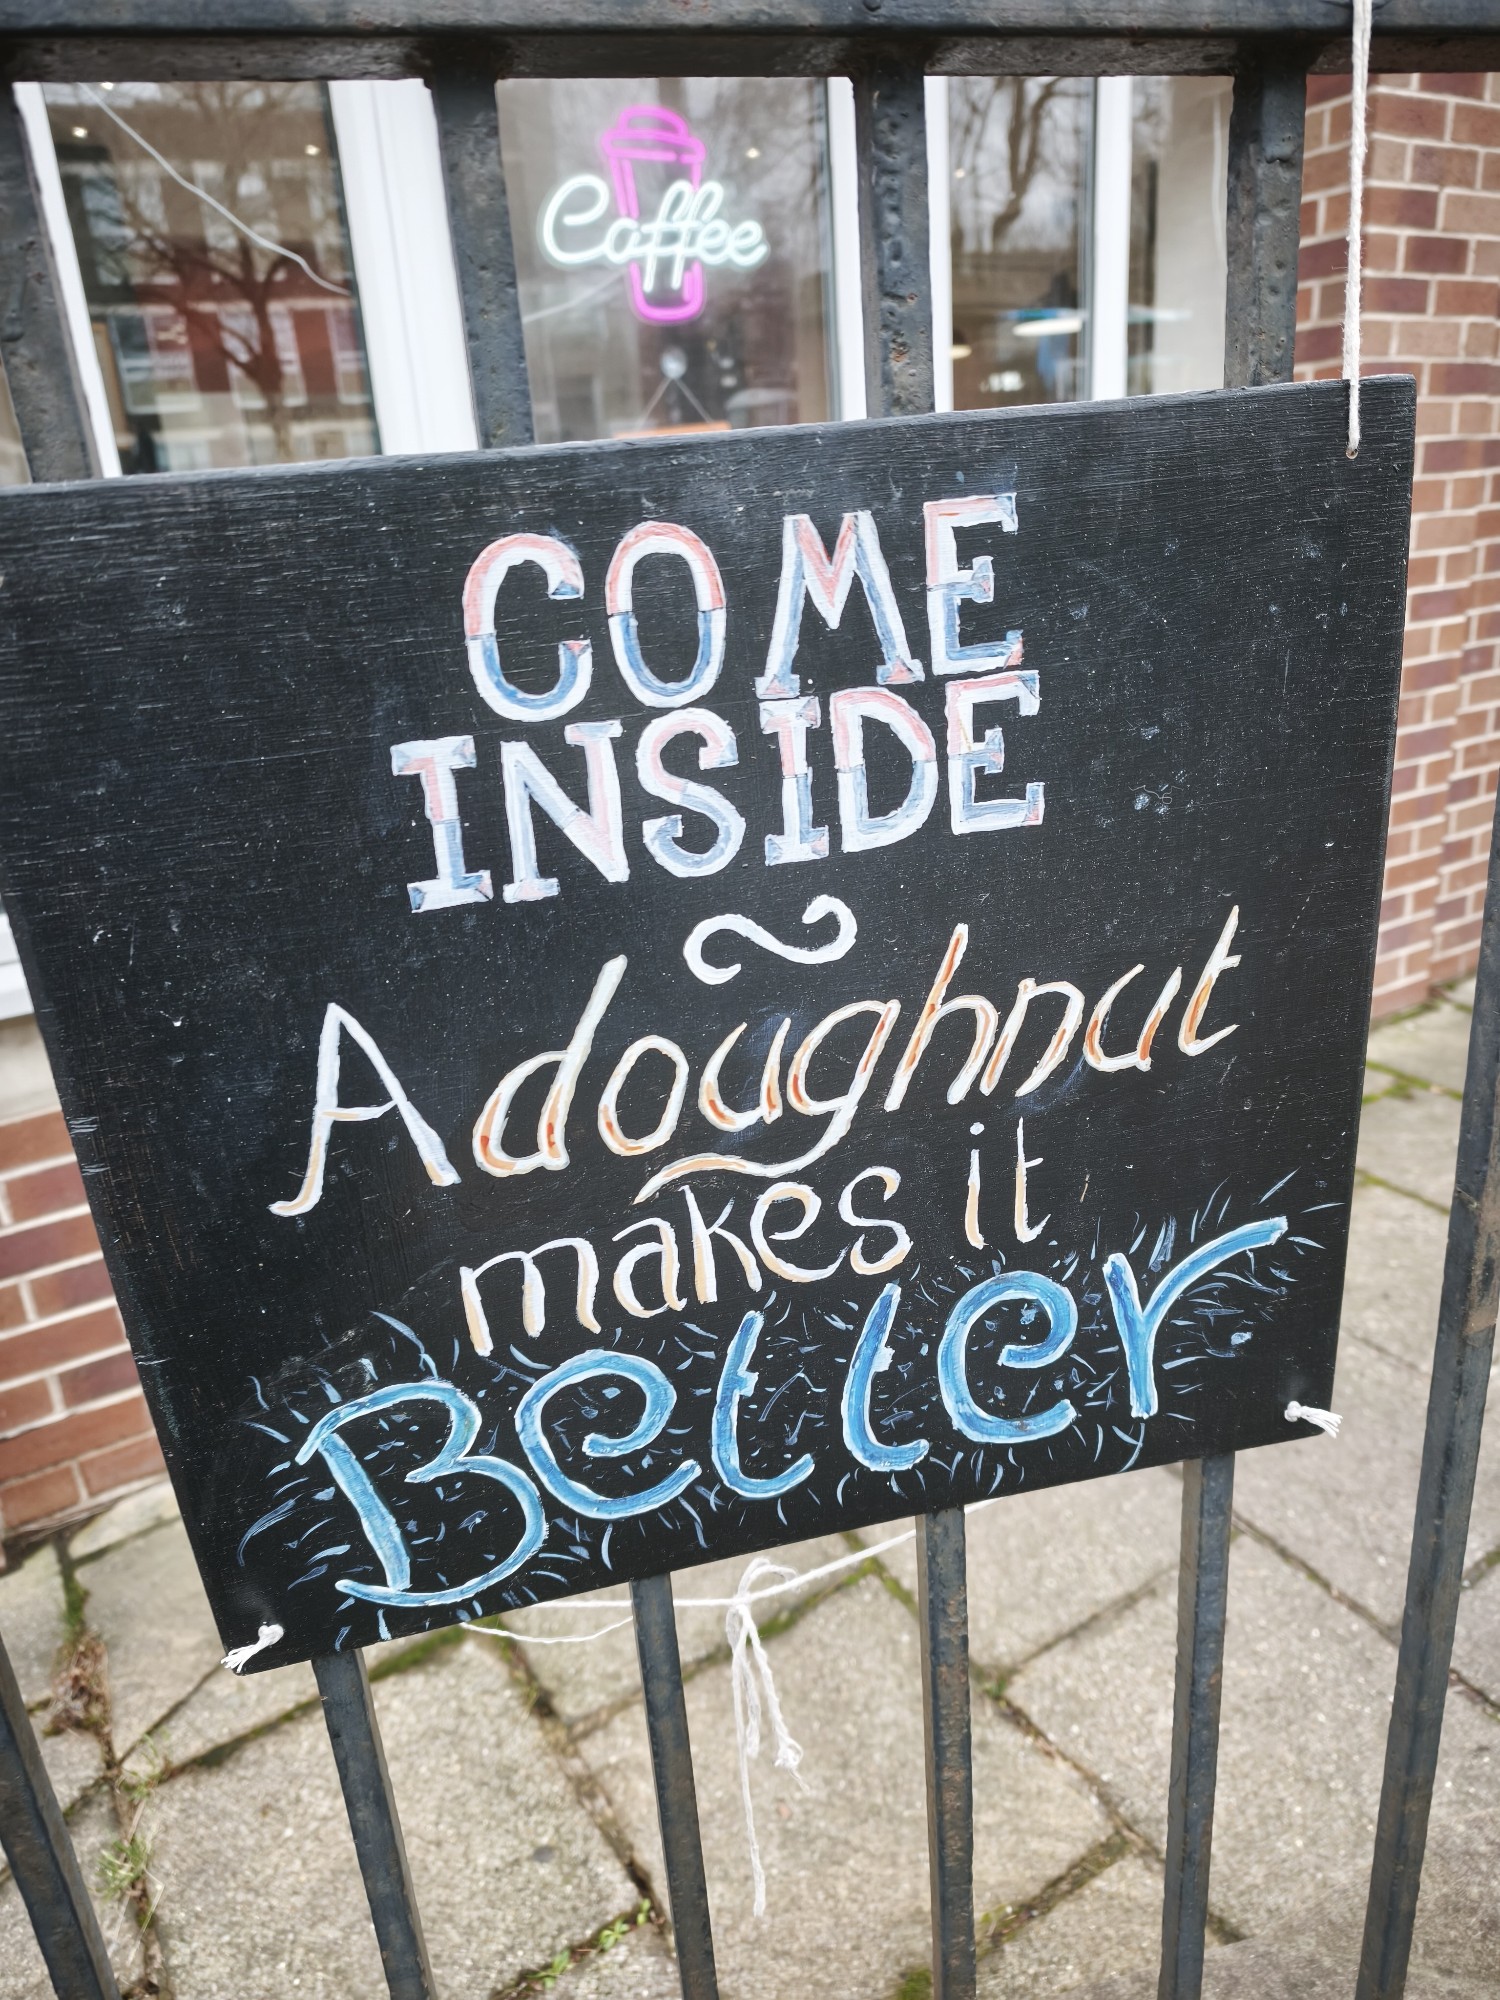 Coffee
COME
INSIDE
A doughnut
makes it
Better